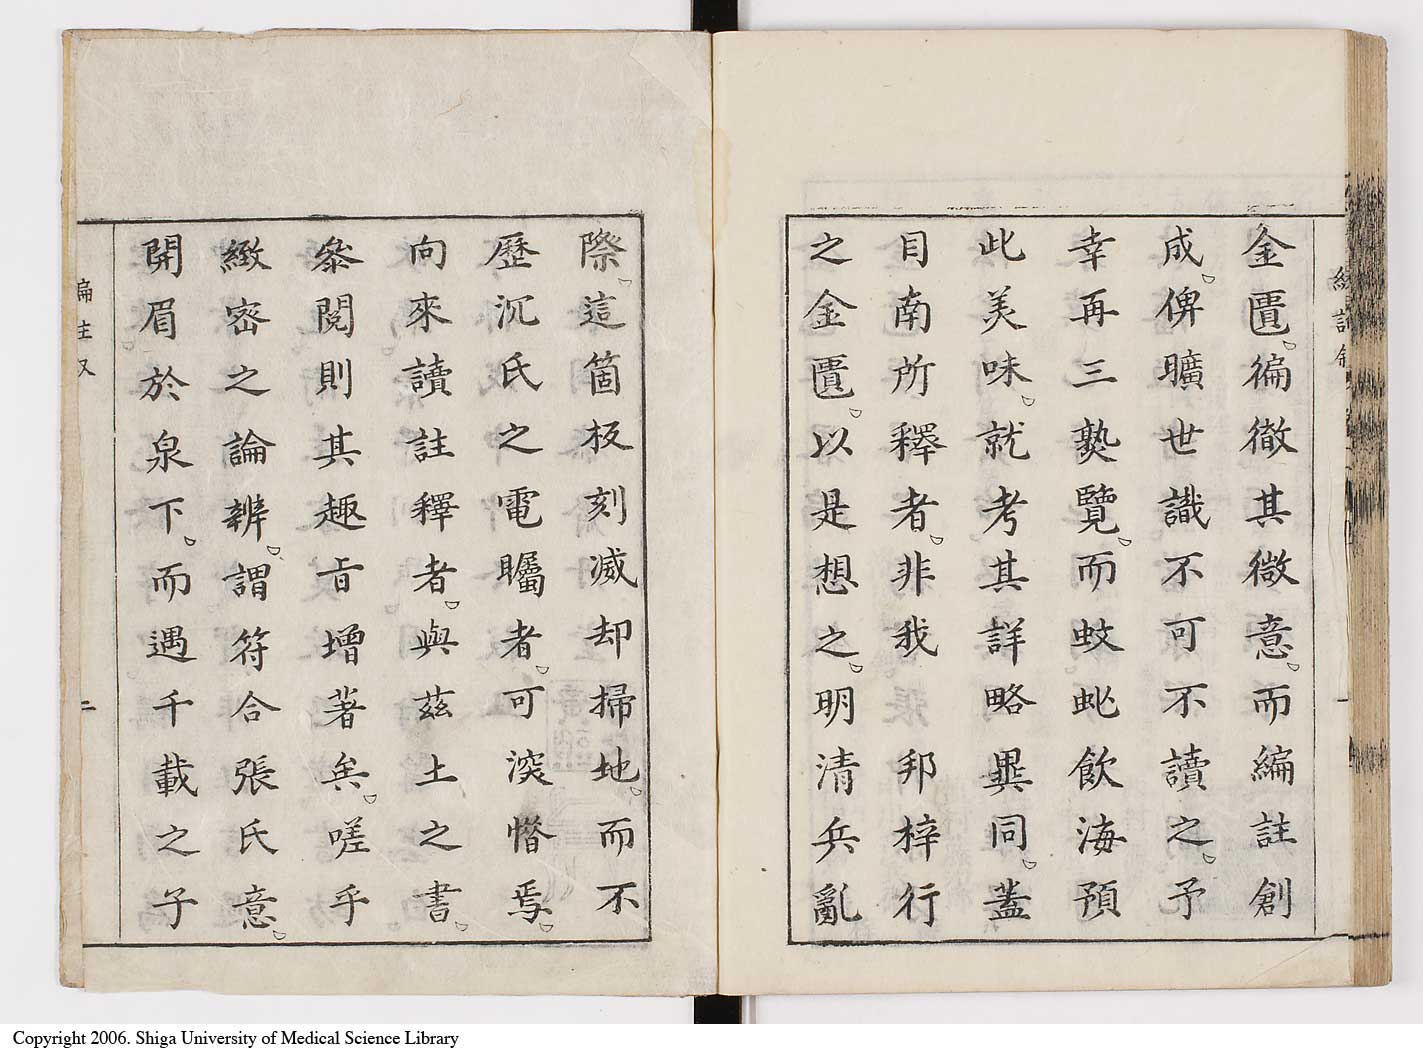 金匱徧徹其微意而編註創
成俾曠世識不可不讀之予
幸再三孰覽而蚊虻飲海預
此美味就考其詳略異同蓋
目南所釋者非我邦梓行
之金匱以是想之明清兵亂
際這箇板刻滅却掃地而不
歷沉氏之電矚者可深惜焉
向來讀註釋者與茲土之書
叅閱則其趣旨增著矣嗟乎
緻密之論辨謂符合張氏意
開眉於泉下而遇千載之子
二
Copyright 2006. Shiga University of Medical Science Library